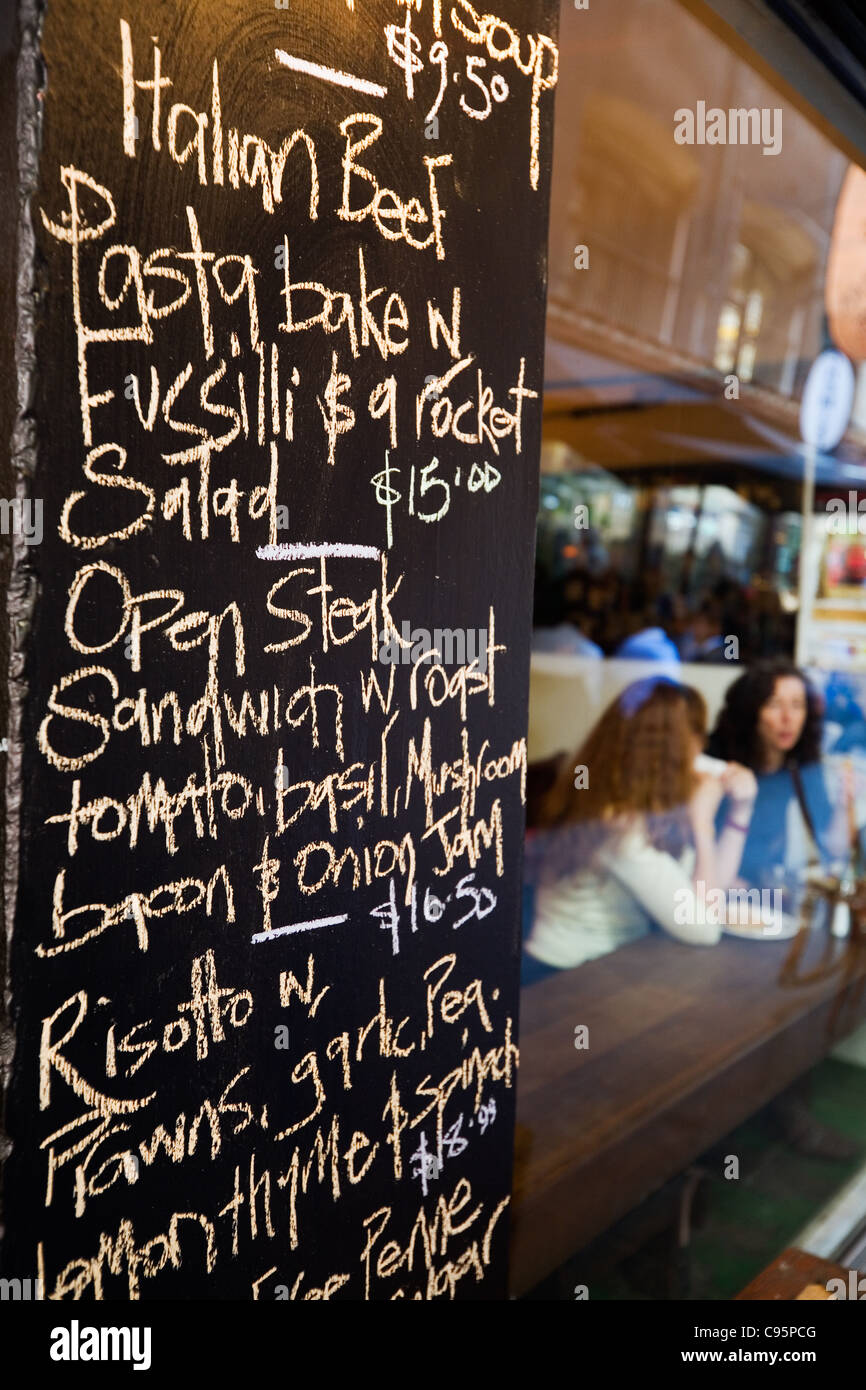 soup
$9.50
Italian Beef
Pasta bake w
Fussilli $ a rocket
Salad $15.00
Open Steak
Sandwich w roast
tomato, basil, Mushroom
bacon & Onion Jam
$16.50
Risotto w,
Prawns, garlic, Pea,
Lemon thyme & spinach
$18.99
Free Penne
alamy
Image ID: C95PCG
www.alamy.com